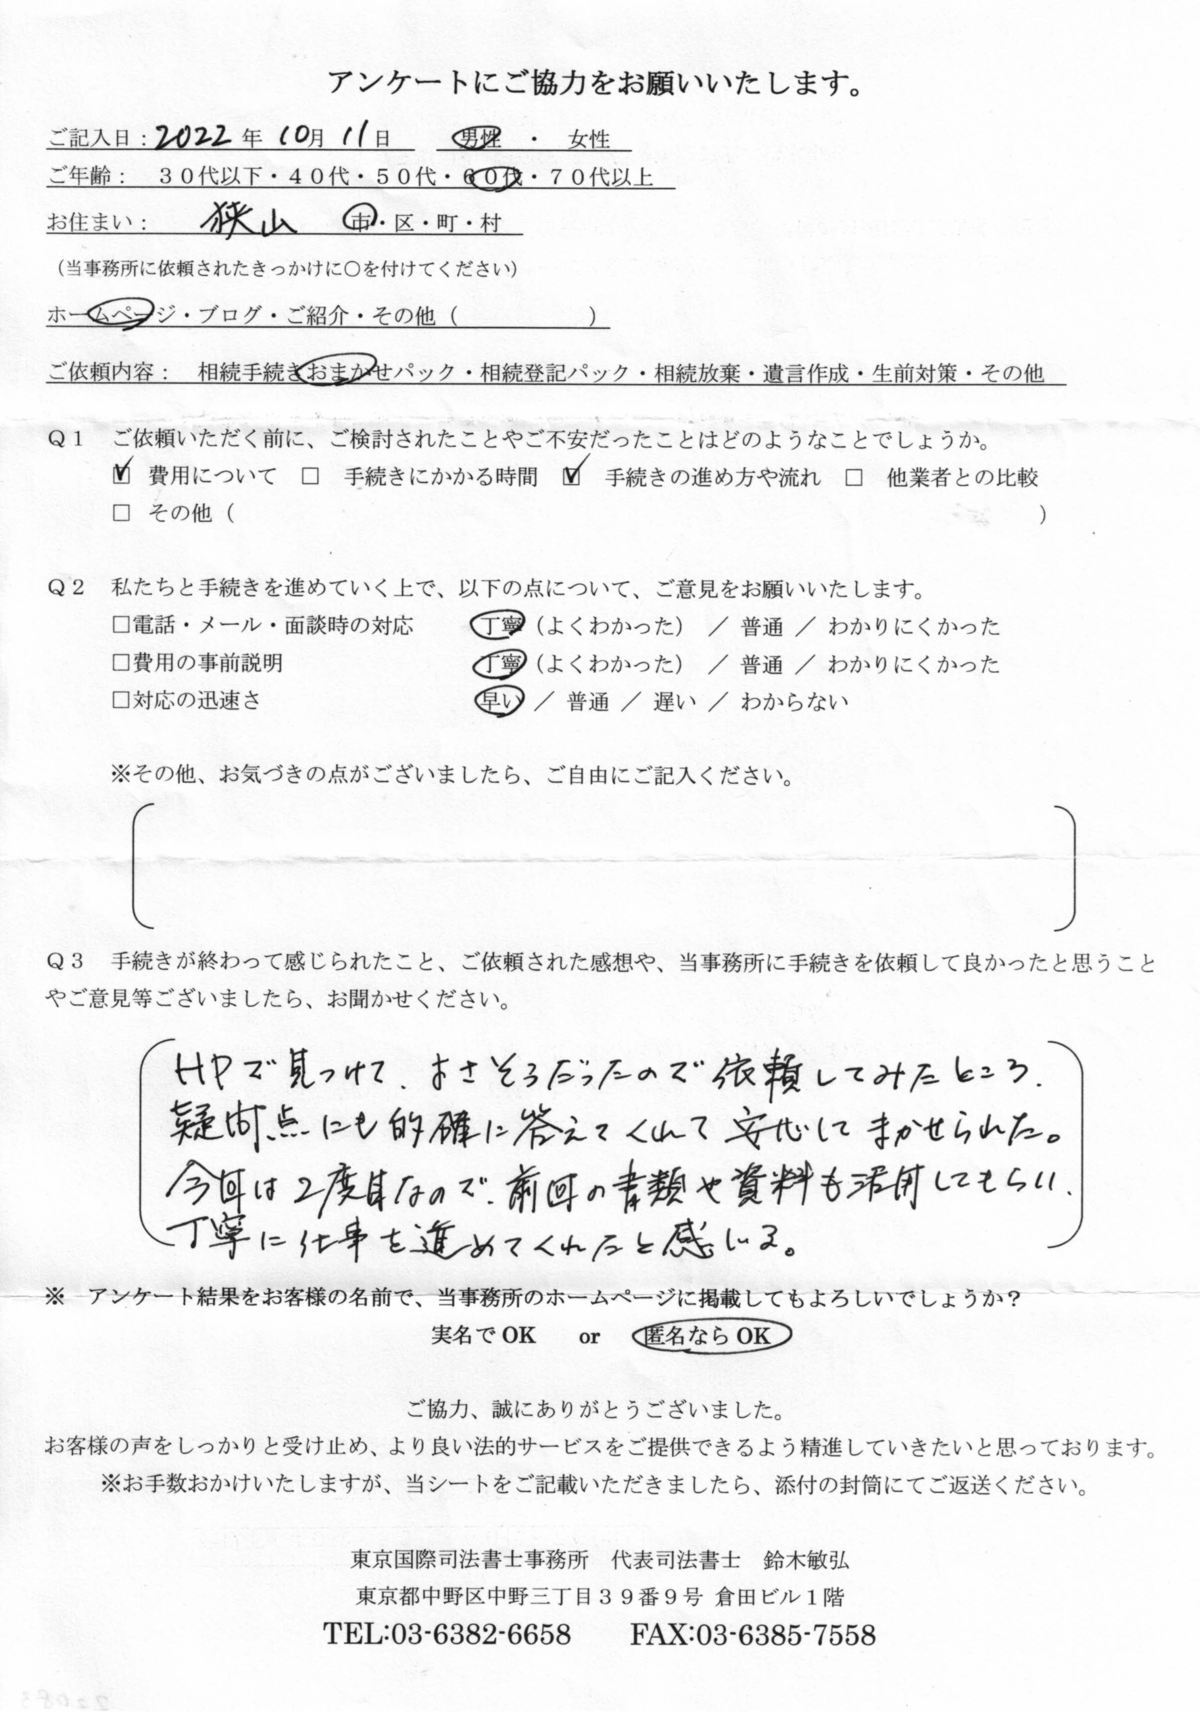 アンケートにご協力をお願いいたします。
ご記入日：2022年 10月 11日　男性 ・ 女性
ご年齢：　３０代以下・４０代・５０代・６０代・７０代以上
お住まい：　狭山　市・区・町・村
（当事務所に依頼されたきっかけに○を付けてください）
ホームページ・ブログ・ご紹介・その他（　　　　　　）
ご依頼内容：　相続手続きおまかせパック・相続登記パック・相続放棄・遺言作成・生前対策・その他
Ｑ１　ご依頼いただく前に、ご検討されたことやご不安だったことはどのようなことでしょうか。
☑ 費用について　□ 手続きにかかる時間　☑ 手続きの進め方や流れ　□ 他業者との比較
□ その他（　　　　　　）
Ｑ２　私たちと手続きを進めていく上で、以下の点について、ご意見をお願いいたします。
□電話・メール・面談時の対応　丁寧（よくわかった） ／ 普通 ／ わかりにくかった
□費用の事前説明　丁寧（よくわかった） ／ 普通 ／ わかりにくかった
□対応の迅速さ　早い ／ 普通 ／ 遅い ／ わからない
※その他、お気づきの点がございましたら、ご自由にご記入ください。
Ｑ３　手続きが終わって感じられたこと、ご依頼された感想や、当事務所に手続きを依頼して良かったと思うこと
やご意見等ございましたら、お聞かせください。
HPで見つけて、よさそうだったので依頼してみたところ、
疑問点にも的確に答えてくれて安心してまかせられた。
今回は2度目なので、前回の書類や資料も活用してもらい、
丁寧に仕事を進めてくれたと感じる。
※　アンケート結果をお客様の名前で、当事務所のホームページに掲載してもよろしいでしょうか？
実名でOK　or　匿名ならOK
ご協力、誠にありがとうございました。
お客様の声をしっかりと受け止め、より良い法的サービスをご提供できるよう精進していきたいと思っております。
※お手数おかけいたしますが、当シートをご記載いただきましたら、添付の封筒にてご返送ください。
東京国際司法書士事務所　代表司法書士　鈴木敏弘
東京都中野区中野三丁目３９番９号 倉田ビル１階
TEL:03-6382-6658　FAX:03-6385-7558